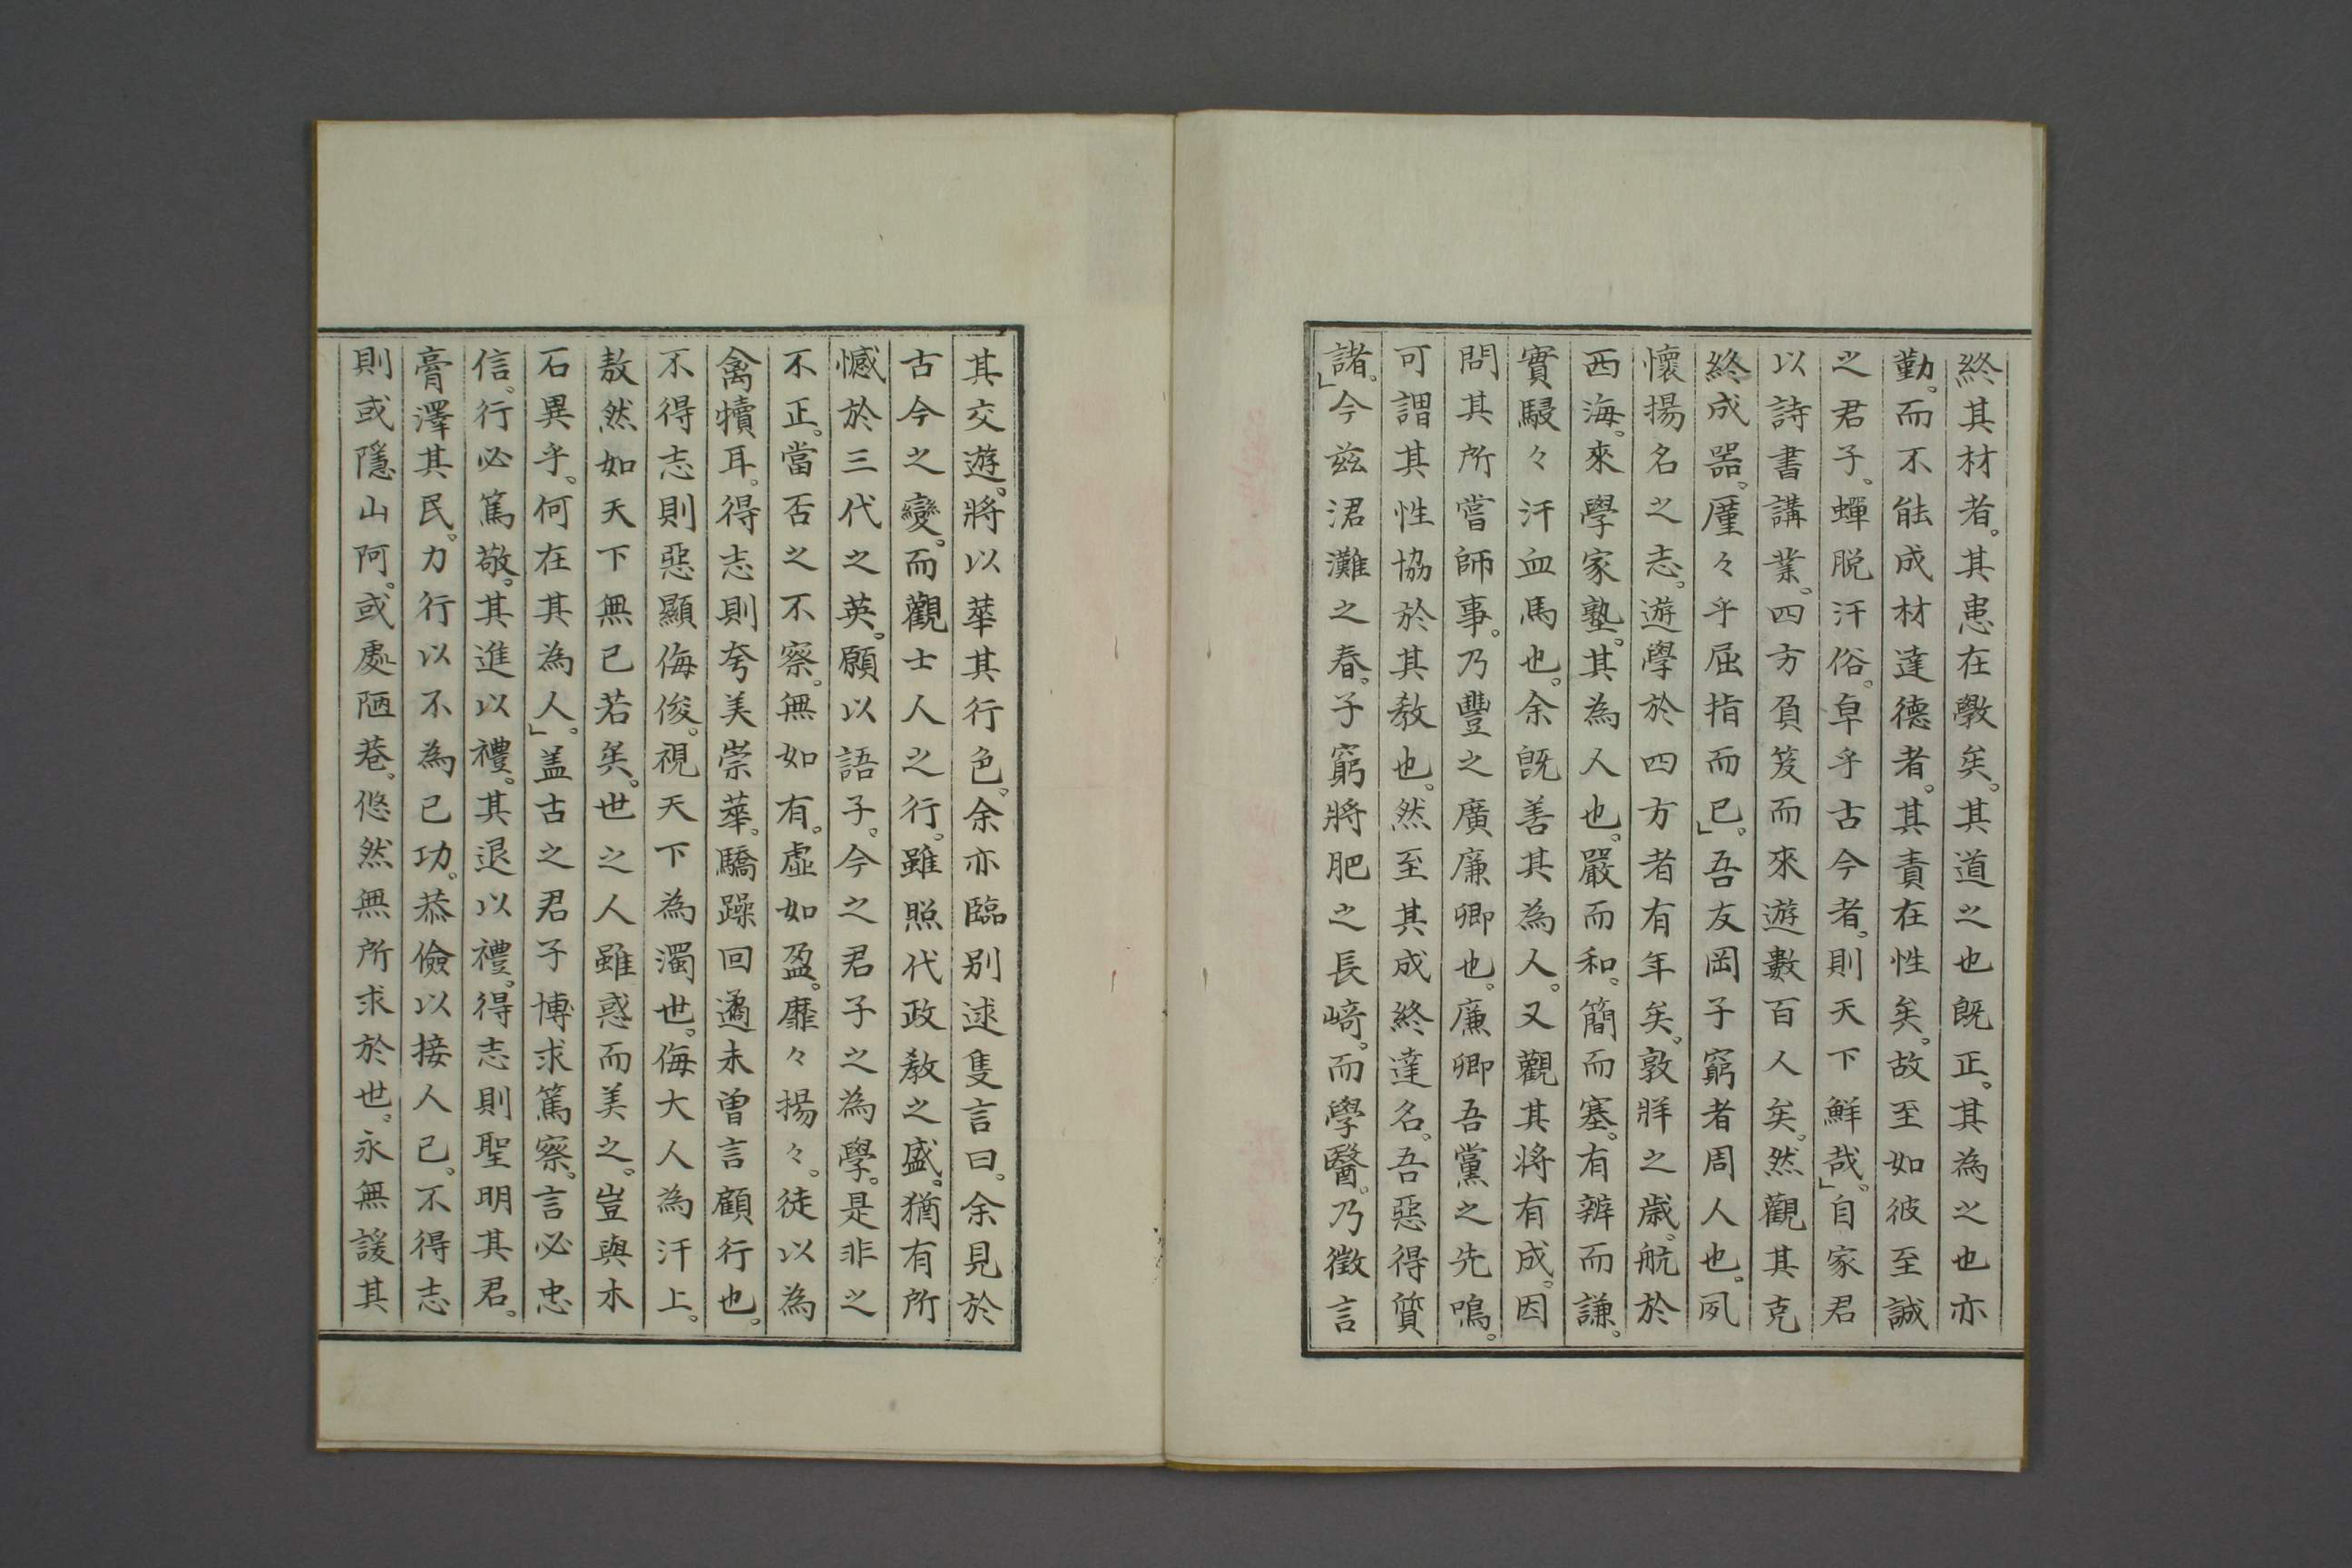 終其材者。其患在斅矣。其道之也既正。其為之也亦
勤。而不能成材達德者。其責在性矣。故至如彼至誠
之君子。蟬脫汗俗。卓乎古今者。則天下鮮哉。」自家君
以詩書講業。四方負笈而來遊數百人矣。然觀其克
終成器。厪々乎屈指而已。」吾友岡子窮者周人也。夙
懷揚名之志。遊學於四方者有年矣。敦牂之歲。航於
西海。來學家塾。其為人也。嚴而和。簡而塞。有辨而謙。
實駸々汗血馬也。余既善其為人。又觀其將有成。因
問其所嘗師事。乃豐之廣廉卿也。廉卿吾黨之先鳴。
可謂其性協於其教也。然至其成終達名。吾惡得質
諸。」今茲涒灘之春。子窮將肥之長﨑。而學醫。乃徵言
其交遊。將以華其行色。余亦臨別逑隻言曰。余見於
古今之變。而觀士人之行。雖照代政教之盛。猶有所
憾於三代之英。願以語子。今之君子之為學。是非之
不正。當否之不察。無如有。虛如盈。靡々揚々。徒以為
禽犢耳。得志則夸美崇華。驕躁回遹未曾言顧行也。
不得志則惡顯侮俊。視天下為濁世。侮大人為汗上。
敖然如天下無已若矣。世之人雖惑而美之。豈與木
石異乎。何在其為人。」盖古之君子博求篤察。言必忠
信。行必篤敬。其進以禮。其退以禮。得志則聖明其君。
膏澤其民。力行以不為已功。恭儉以接人已。不得志
則或隱山阿。或處陋巷。悠然無所求於世。永無諼其